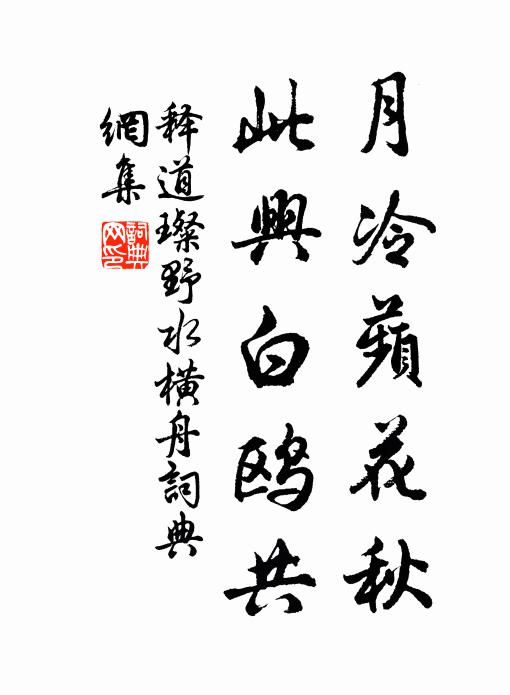 月冷蘋花秋
此興白鸥共
释道璨野水橫舟詞典
網集
詞典
网印